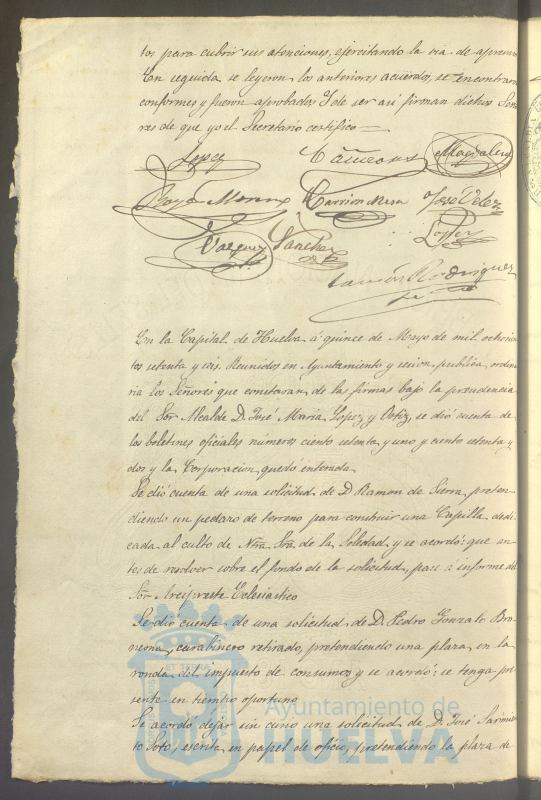 tos para cubrir sus atenciones, ejercitando la via de apremio
En seguida se leyeron los anteriores acuerdos, se encontraron
conformes y fueron aprobados Y de ser asi firman dichos Seño
res de que yo el Secretario certifico =
Lopez Cañizares Magdalena
Moreno Carrion Mesa José Velez
Vazquez Sanchez Lopez
Ramón Rodriguez
En la Capital de Huelva á quince de Mayo de mil ochocien
tos setenta y seis. Reunidos en Ayuntamiento y sesion publica ordina
ria los Señores que constaran de las firmas bajo la presidencia
del Sor Alcalde D. José Maria Lopez y Ortiz, se dió cuenta de
los boletines oficiales números ciento setenta y uno y ciento setenta y
dos y la Corporacion quedó enterada
Se dió cuenta de una solicitud de D Ramon de Sierra, preten
diendo un pedazo de terreno para construir una Capilla dedi
cada al culto de Ntra Sra de la Soledad, y se acordó: que an
tes de resolver sobre el fondo de la solicitud, pase a informe del
Sor Arcipreste Eclesiastico
Se dió cuenta de una solicitud de D. Pedro Gonzalo
carabinero retirado, pretendiendo una plaza en la
ronda del impuesto de consumos y se acordó: se tenga pre
sente en tiempo oportuno
Se acordó dejar sin curso una solicitud de D. José
to Soto, escrita en papel de oficio, pretendiendo la plaza de
Ayuntamiento de
HUELVA